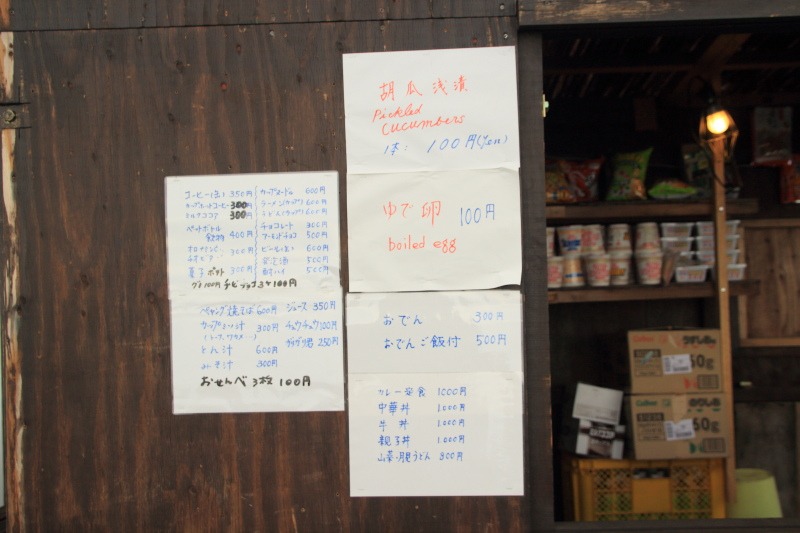 胡瓜浅漬
Pickled
cucumbers
1本: 100円(yen)
ゆで卵 100円
boiled egg
おでん 300円
おでんご飯付 500円
カレー定食 1000円
中華丼 1,000円
牛丼 1,000円
親子丼 1,000円
山菜・月見うどん 800円
コーヒー(缶) 350円
カップホットコーヒー 300円
ミルクココア 300円
ペットボトル
飲物 400円
300円
菓子 ポット 300円
カップヌードル 600円
ラーメン(カップ) 600円
うどん(カップ) 600円
チョコレート 300円
アーモンドチョコ 500円
ビール(缶) 600円
500円
酎ハイ 500円
100円 3ヶ100円
ペヤング焼そば 600円
カップみそ汁 300円
とん汁 600円
みそ汁 300円
おせんべ 3枚 100円
ジュース 350円
チュウチュウ 100円
ガリガリ君 250円
Calbee
60g
Calbee
60g